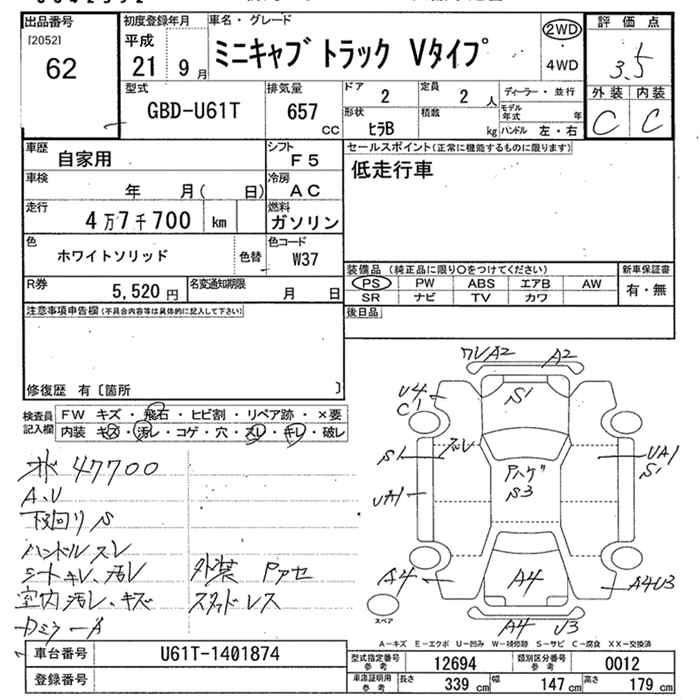 出品番号 初度登録年月 車名・グレード 評価点
[2052] 平成 ②WD
62 21 9月 ミニキャブ トラック Vタイプ ・ 3.5
4WD
型式 排気量 ドア 定員 ディーラー・並行 外装 内装
GBD-U61T 657 cc 2 2 人 モデル年式 年 C C
形状 積載
ヒラB kg ハンドル 左・右
車歴 自家用 シフト F5 セールスポイント(正常に機能するものに限ります)
車検 年 月( 日) 冷房 AC 低走行車
走行 4万7千700 km 燃料 ガソリン
色 ホワイトソリッド 色替 色コード W37
装備品 (純正品に限り○をつけてください) 新車保証書
R券 5,520円 名変通知期限 月 日 PS PW ABS エアB AW 有・無
SR ナビ TV カワ
注意事項申告欄(不具合内容等は具体的に記入して下さい) 後日品
修復歴 有〔箇所 〕
検査員記入欄 FW キズ・飛石・ヒビ割・リペア跡・×要
内装 キズ・汚レ・コゲ・穴・スレ・キレ・破レ
ワレA2 A2
U4 S1
C1
S1 スレ UA1
S1
Pハゲ
S3
UA1
A4 A4 A4U3
A4 U3
スペア
47700
A.U
下回りS
ハンドルスレ
シートキレ、汚レ 外装 Pアセ
室内汚レ、キズ スタッドレス
A
A-キズ E-エクボ U-凹み W-補修跡 S-サビ C-腐食 XX-交換済
車台番号 U61T-1401874
型式指定番号 参考 12694 類別区分番号 参考 0012
登録番号
車庫証明用 参考 長さ 339 cm 幅 147 cm 高さ 179 cm